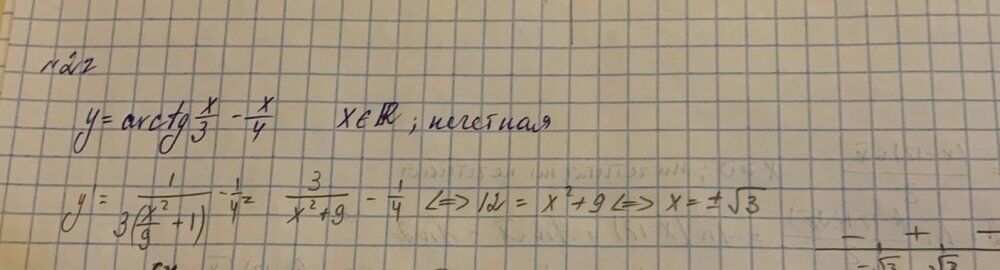 №2г
y = arctg x/3 - x/4    x∈ℝ ; нечетная
y' = 1/(3(x²/9 + 1)) - 1/4 = 3/(x²+9) - 1/4 <=> 12 = x²+9 <=> x = ±√3
- + -
-√3 √3